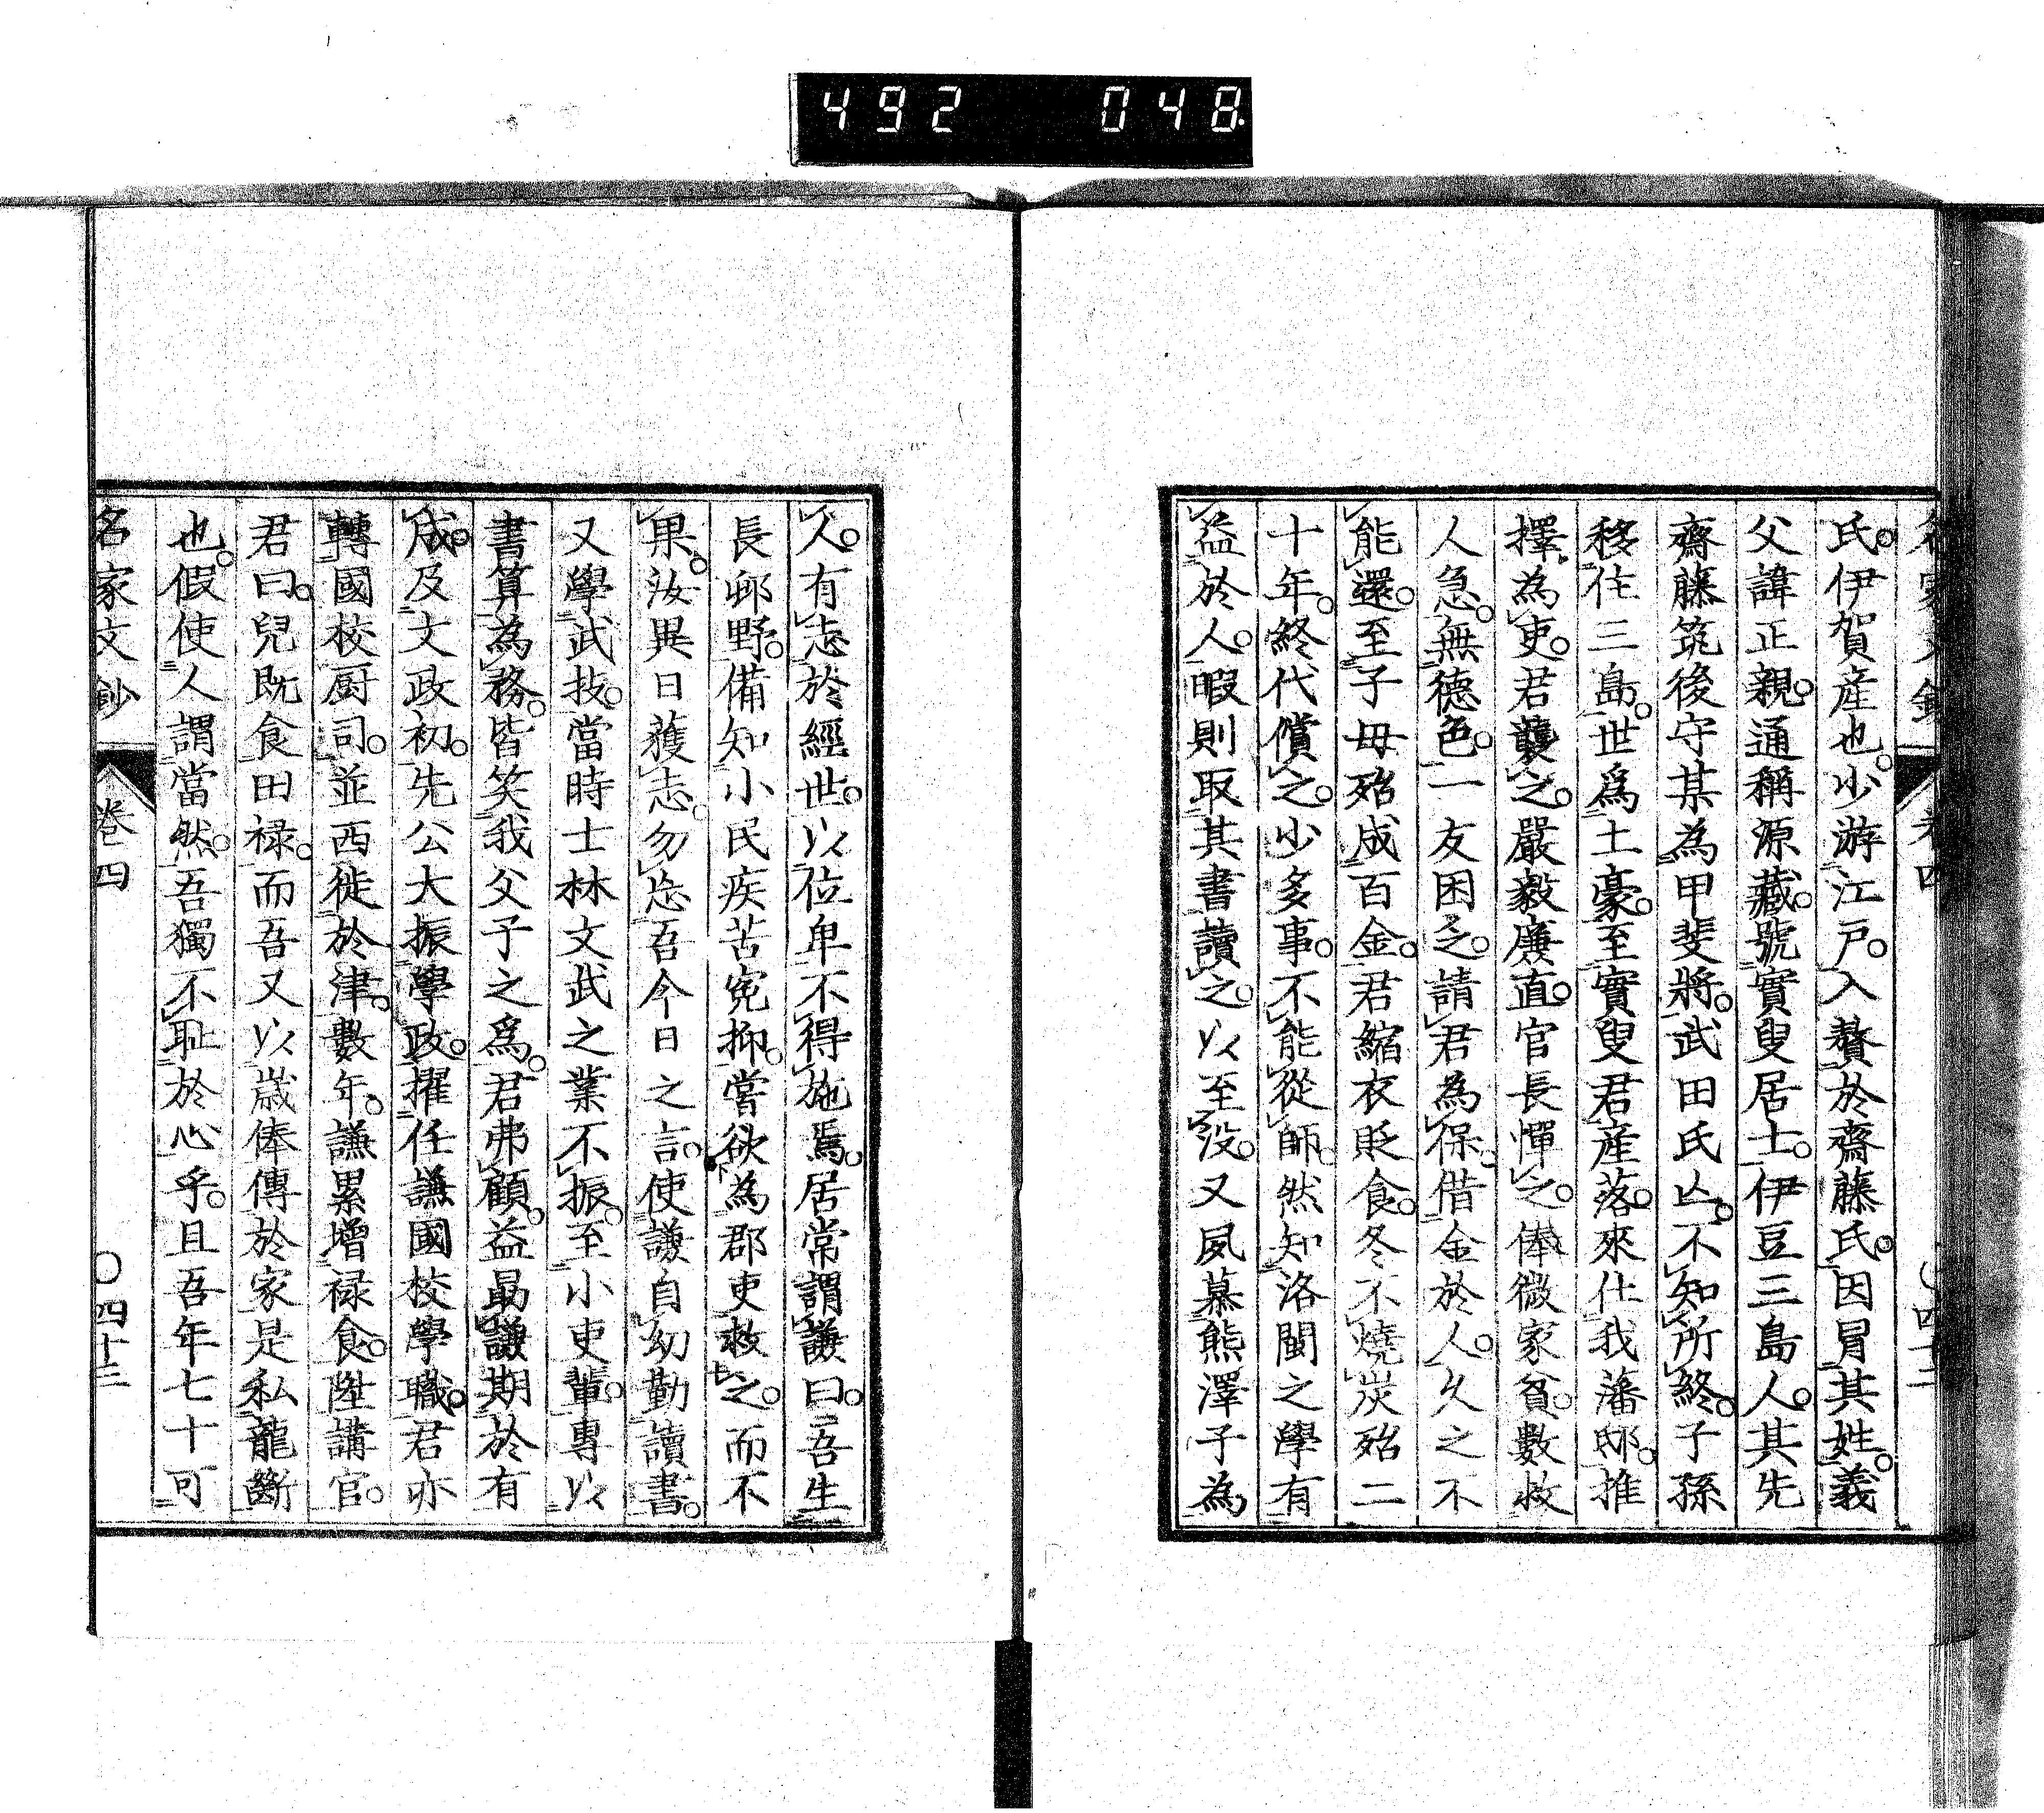 492 048
名家文鈔 卷四 四十二
氏。伊賀産也。少游江戸。入贅於齋藤氏。因冒其姓。義
父諱正親。通稱源藏。號實叟居士。伊豆三島人。其先
齋藤筑後守某為甲斐將。武田氏亾。不知所終。子孫
移住三島。世爲土豪。至實叟君産落。來仕我藩邸。推
擇為吏。君襲之。嚴毅廉直。官長憚之。俸微家貧。數救
人急。無德色。一友困乏。請君為保。借金於人。久之不
能還。至子母殆成百金。君縮衣貶食。冬不燒炭殆二
十年。終代償之。少多事。不能從師。然知洛閩之學有
益於人。暇則取其書讀之。以至没。又夙慕熊澤子為
人。有志於經世。以位卑不得施焉。居常謂謙曰。吾生
長邸野。備知小民疾苦寃抑。嘗欲為郡吏救之。而不
果。汝異日獲志。勿忘吾今日之言。使謙自幼勤讀書。
又學武技。當時士林文武之業不振。至小吏輩。專以
書算為務。皆笑我父子之爲。君弗顧。益勗謙期於有
成。及文政初。先公大振學政。擢任謙國校學職。君亦
轉國校厨司。並西徙於津。數年。謙累增禄食。陞講官。
君曰。兒既食田禄。而吾又以歳俸傳於家是私龍斷
也。假使人謂當然。吾獨不耻於心乎。且吾年七十可
名家文鈔 卷四 〇四十三